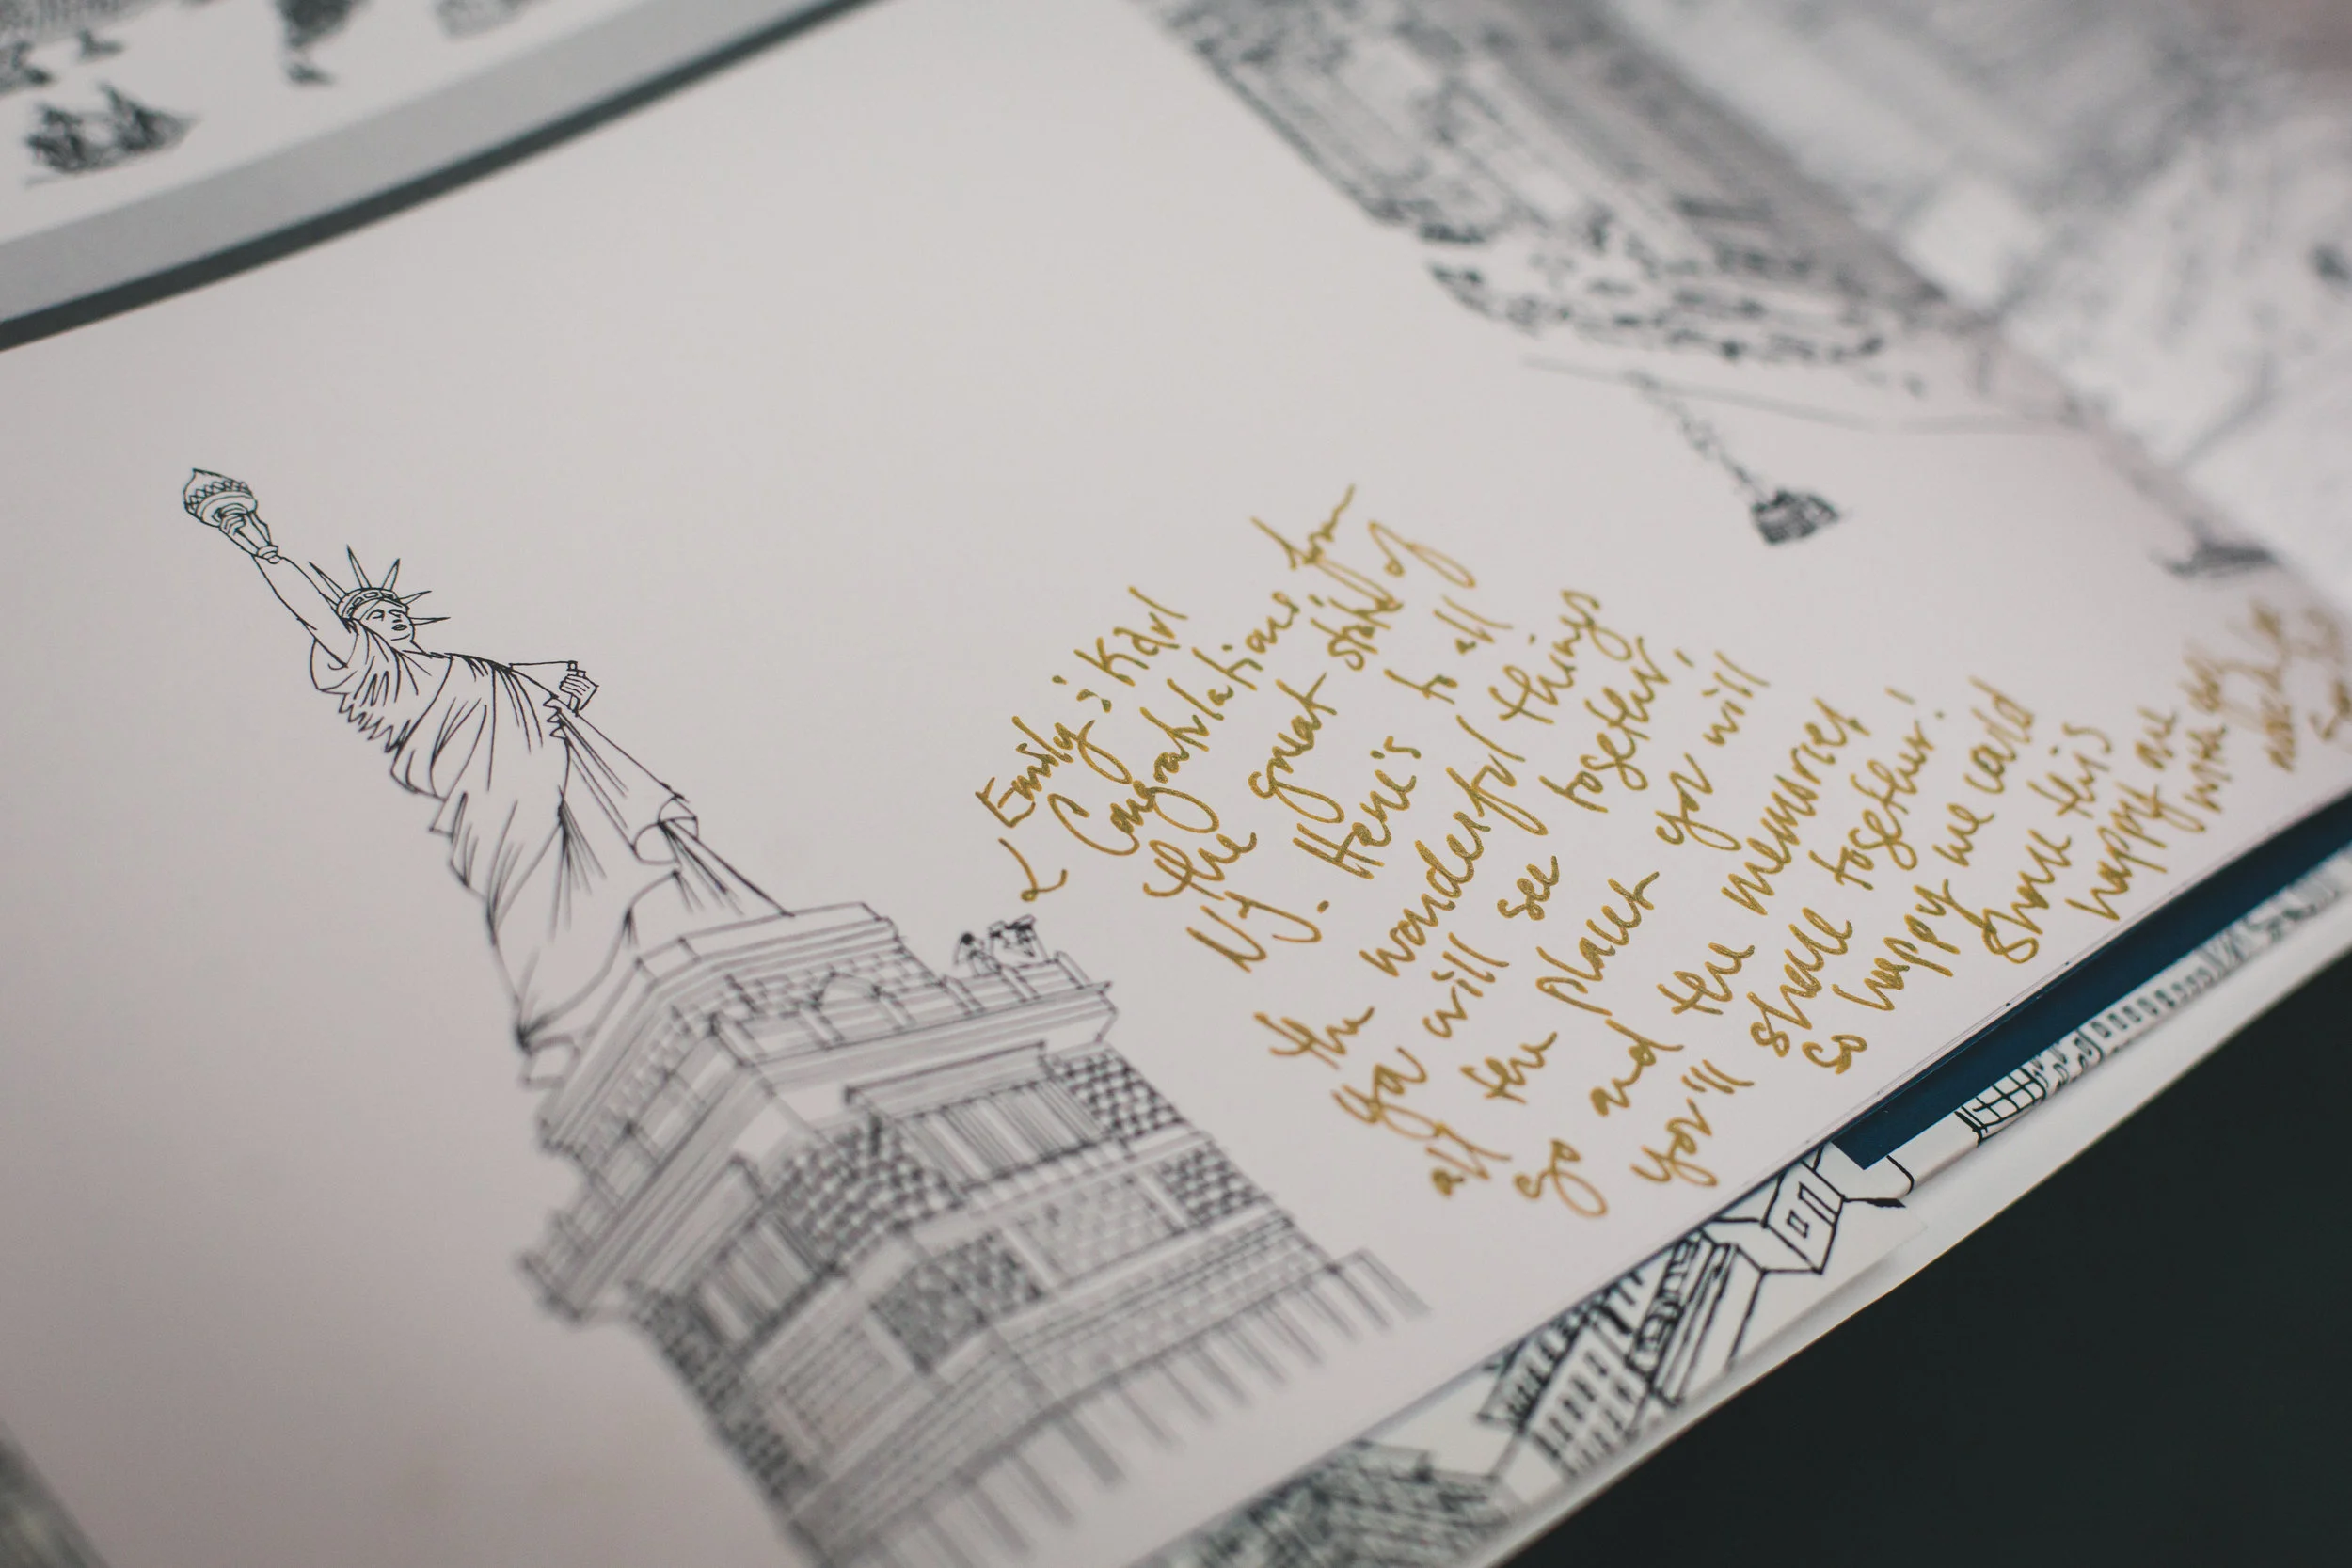 Emily & Karl
Congratulations from
the great state of
NY. Here's to all
the wonderful things
you will see together,
all the places you will
go and the memories
you'll share together!
So happy we could
share this
happy
with